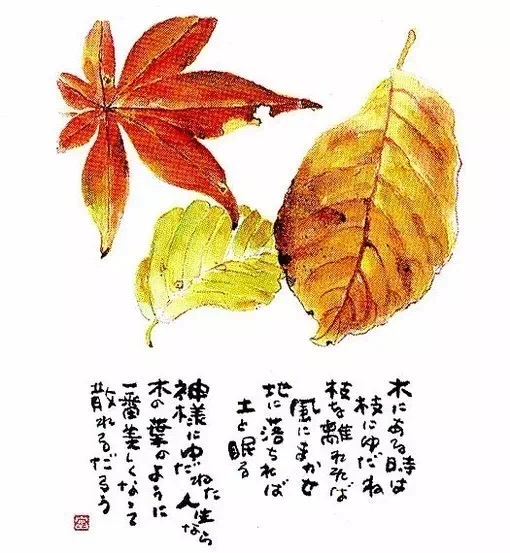 木にある時は
枝にゆだね
枝を離れれば
風にまかせ
地に落ちれば
土と眠る
神様にゆだねた人生なら
木の葉のように
一番美しくなって
散れるだろう
富